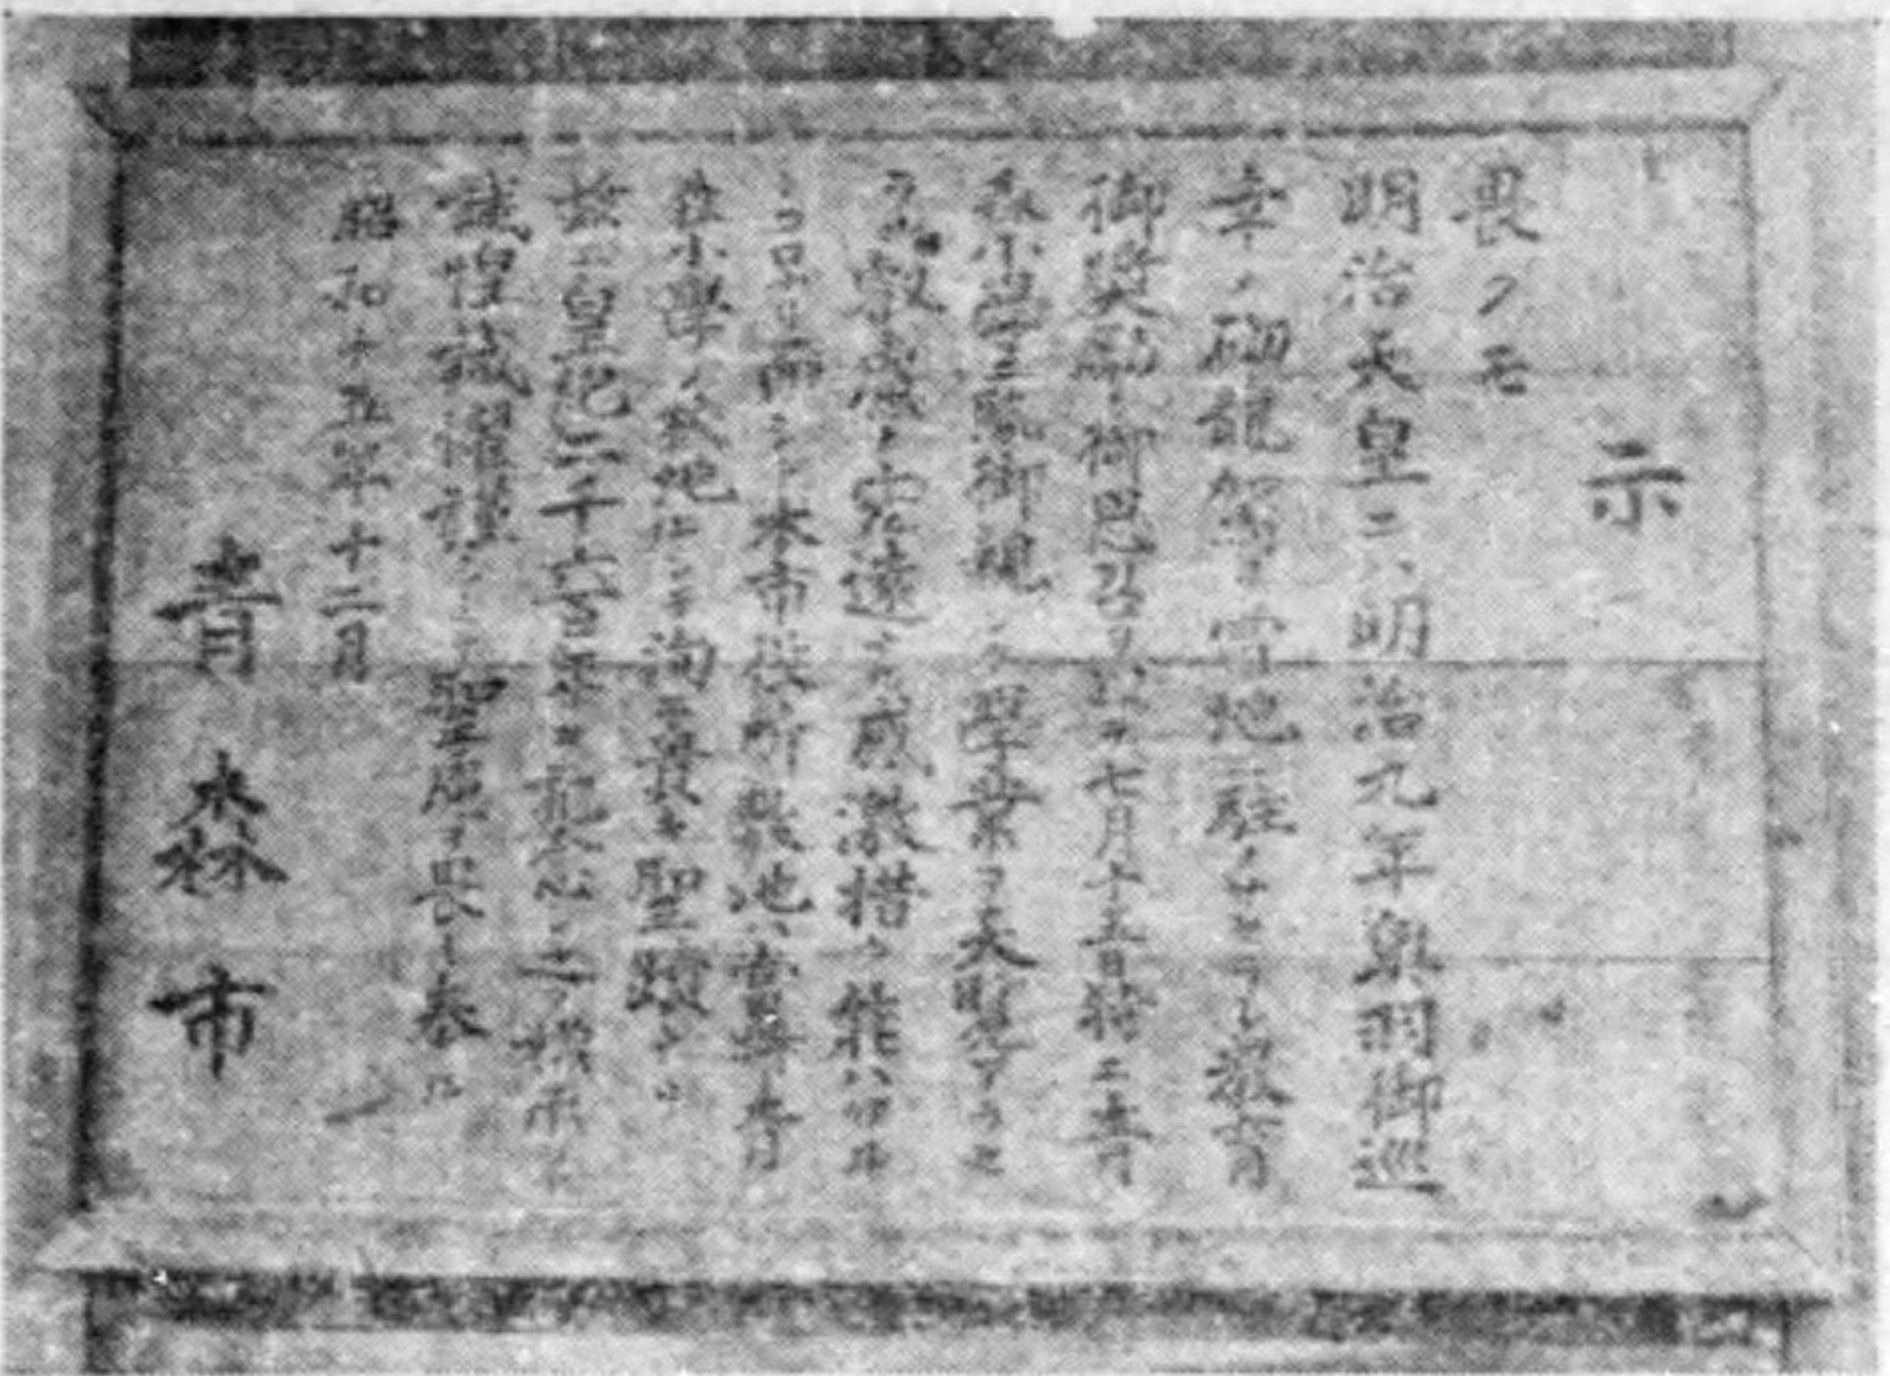 示
畏クモ
明治天皇ニハ明治九年奥羽御巡
幸ノ砌龍駕ヲ当地ニ駐サセラレ教育
御奨励ノ御思召ヲ以テ七月十五日特ニ青
森小学生徒御親シク学業ヲ天覧アラセ
ラル叡慮ノ宏遠ナル感激措ク能ハザル
トコロナリ而シテ本市役所敷地ハ当時青
森小学ノ校地ニシテ洵ニ貴キ聖蹟ナリ
茲ニ皇紀二千六百年ヲ記念シ
誠惶誠懼謹ミテ聖慮ヲ畏ミ奉ル
昭和十五年十二月
青森市